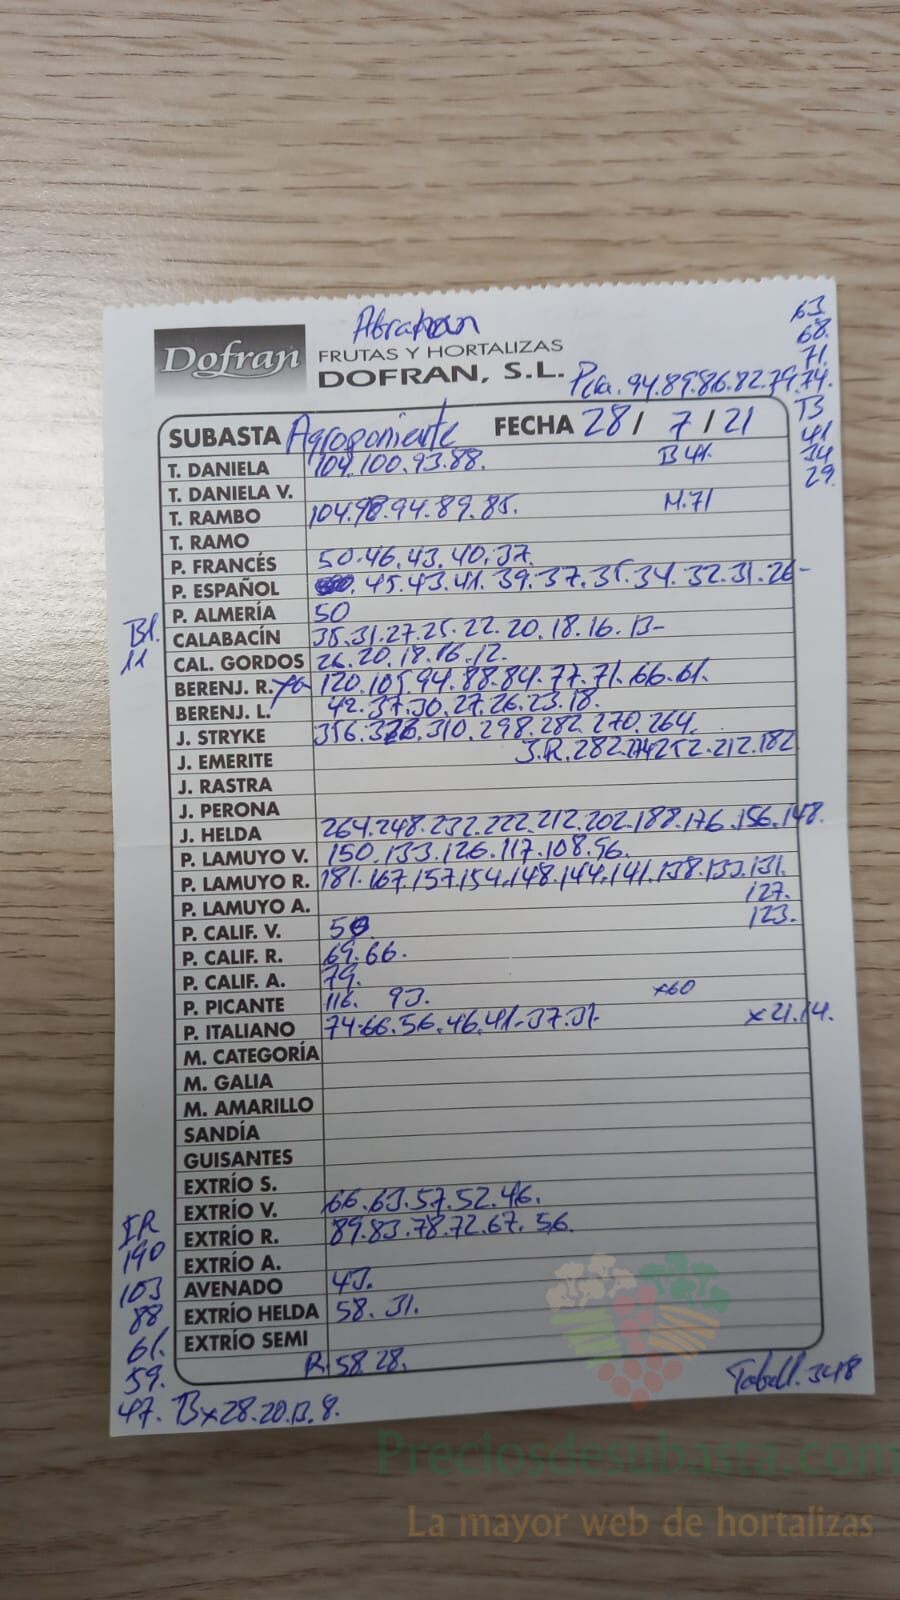 Abraham
63
Dofran FRUTAS Y HORTALIZAS
68.
DOFRAN, S.L.
71.
Pera. 94.89.86.82.79.74.
SUBASTA Agroponiente FECHA 28/ 7/21
B
41
34
29.
T. DANIELA 104.100.93.88. B 41.
T. DANIELA V.
T. RAMBO 104.98.94.89.85. M.71
T. RAMO
P. FRANCÉS 50.46.43.40.37.
P. ESPAÑOL 45.43.41.39.37.35.34.32.31.26-
P. ALMERÍA 50
B1.
11
CALABACÍN 35.31.27.25.22.20.18.16.13-
CAL. GORDOS 26.20.18.16.12.
BERENJ. R. 120.105.94.88.84.77.71.66.61.
BERENJ. L. 42.37.30.27.26.23.18.
J. STRYKE 356.326.310.298.282.270.264.
J. EMERITE J.R.282.274.252.212.182
J. RASTRA
J. PERONA
J. HELDA 264.248.232.222.212.202.188.176.156.148.
P. LAMUYO V. 150.133.126.117.108.96.
P. LAMUYO R. 181.167.157.154.148.144.141.138.133.131.
127.
P. LAMUYO A.
123.
P. CALIF. V. 50
P. CALIF. R. 69.66.
P. CALIF. A. 79.
P. PICANTE 116. 93. x60
P. ITALIANO 74.66.56.46.41-37.31- x21.14.
M. CATEGORÍA
M. GALIA
M. AMARILLO
SANDÍA
GUISANTES
EXTRÍO S.
EXTRÍO V. 66.63.57.52.46.
EXTRÍO R. 89.83.78.72.67.56.
EXTRÍO A.
AVENADO 43.
EXTRÍO HELDA 58.31.
EXTRÍO SEMI
R. 58.28.
190
103
88
61.
59.
47. Bx28.20.13.8.
Tabell. 348
Preciosdesubasta.com
La mayor web de hortalizas